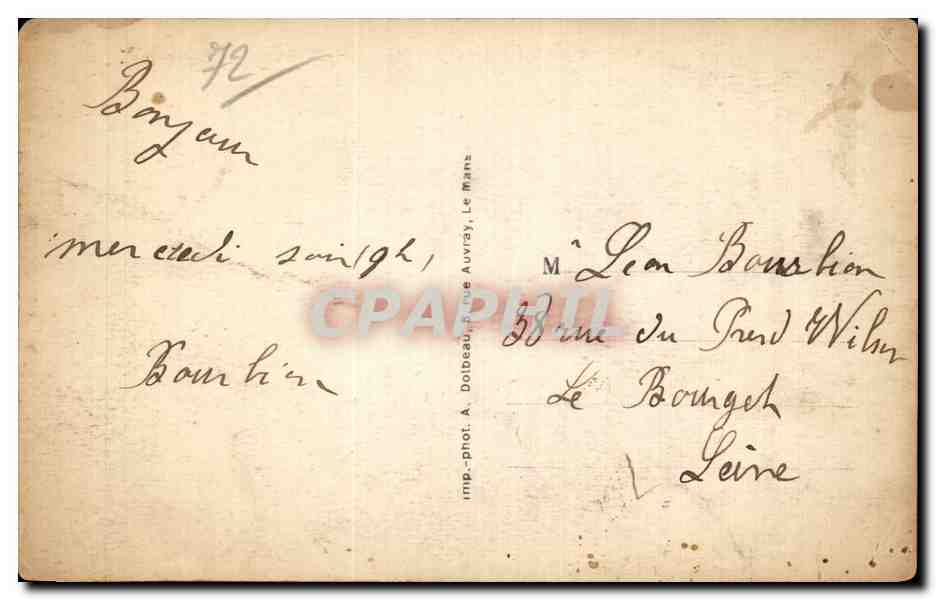 72
Bonjour
mercredi soir 9h,
Bourbion
M à Léon Bourbion
38 rue du Presd Wilson
Le Bourget
Seine
Imp.-phot. A. Dolbeau, 5, rue Auvray, Le Mans
CPAPHIL